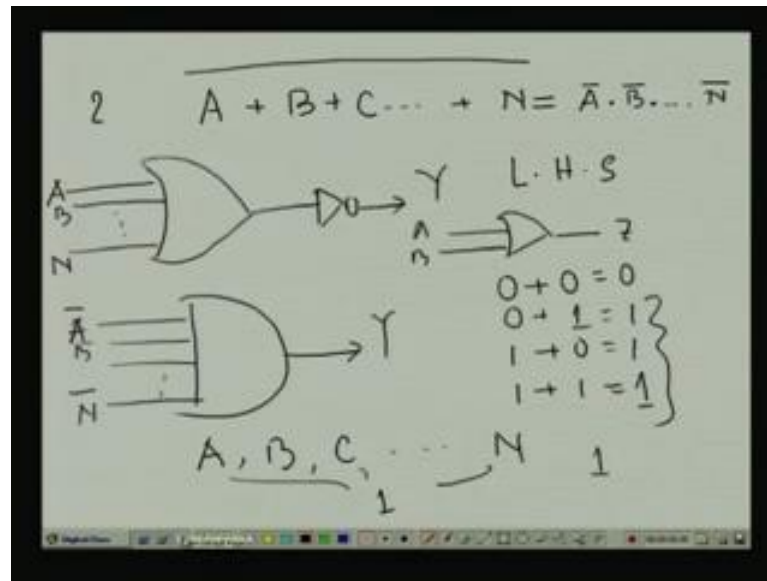 2 \overline{A + B + C ... + N} = A̅ · B̅ . ... N̅
A
B
⋮
N
Y
L . H . S
A
B
Z
0 + 0 = 0
0 + 1 = 1
1 + 0 = 1
1 + 1 = 1
A̅
B̅
⋮
N̅
Y
A, B, C, ... N 1
1